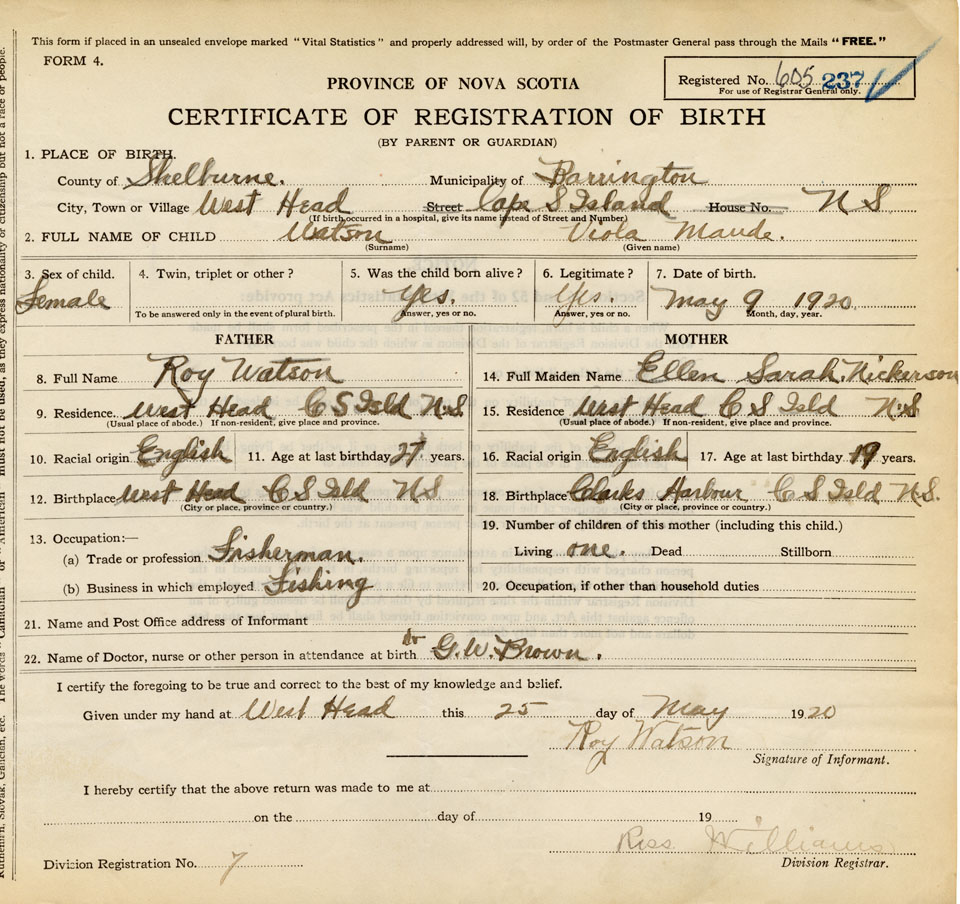 This form if placed in an unsealed envelope marked "Vital Statistics" and properly addressed will, by order of the Postmaster General pass through the Mails "FREE."
FORM 4.
Registered No. 605 237
For use of Registrar General only.
PROVINCE OF NOVA SCOTIA
CERTIFICATE OF REGISTRATION OF BIRTH
(BY PARENT OR GUARDIAN)
1. PLACE OF BIRTH.
County of Shelburne. Municipality of Barrington
City, Town or Village West Head Street Cape S Island House No. N S
(If birth occurred in a hospital, give its name instead of Street and Number)
2. FULL NAME OF CHILD Watson Viola Maude.
(Surname) (Given name)
3. Sex of child. 4. Twin, triplet or other? 5. Was the child born alive? 6. Legitimate? 7. Date of birth.
Female Yes. Yes. May 9 1920
To be answered only in the event of plural birth. Answer, yes or no. Answer, yes or no. Month, day, year.
FATHER MOTHER
8. Full Name Roy Watson 14. Full Maiden Name Ellen Sarah Nickerson
9. Residence. West Head C S Isld N.S 15. Residence West Head C S Isld N.S
(Usual place of abode.) If non-resident, give place and province. (Usual place of abode.) If non-resident, give place and province.
10. Racial origin English 11. Age at last birthday 27 years. 16. Racial origin English 17. Age at last birthday 19 years.
12. Birthplace West Head C S Isld N S 18. Birthplace Clarks Harbour C S Isld N.S.
(City or place, province or country.) (City or place, province or country.)
13. Occupation:— 19. Number of children of this mother (including this child.)
(a) Trade or profession Fisherman. Living one. Dead Stillborn
(b) Business in which employed Fishing 20. Occupation, if other than household duties
21. Name and Post Office address of Informant
22. Name of Doctor, nurse or other person in attendance at birth dr G.W. Brown.
I certify the foregoing to be true and correct to the best of my knowledge and belief.
Given under my hand at West Head this 25 day of May 1920
Roy Watson
Signature of Informant.
I hereby certify that the above return was made to me at
on the day of 19
Williams
Division Registrar.
Division Registration No. 7